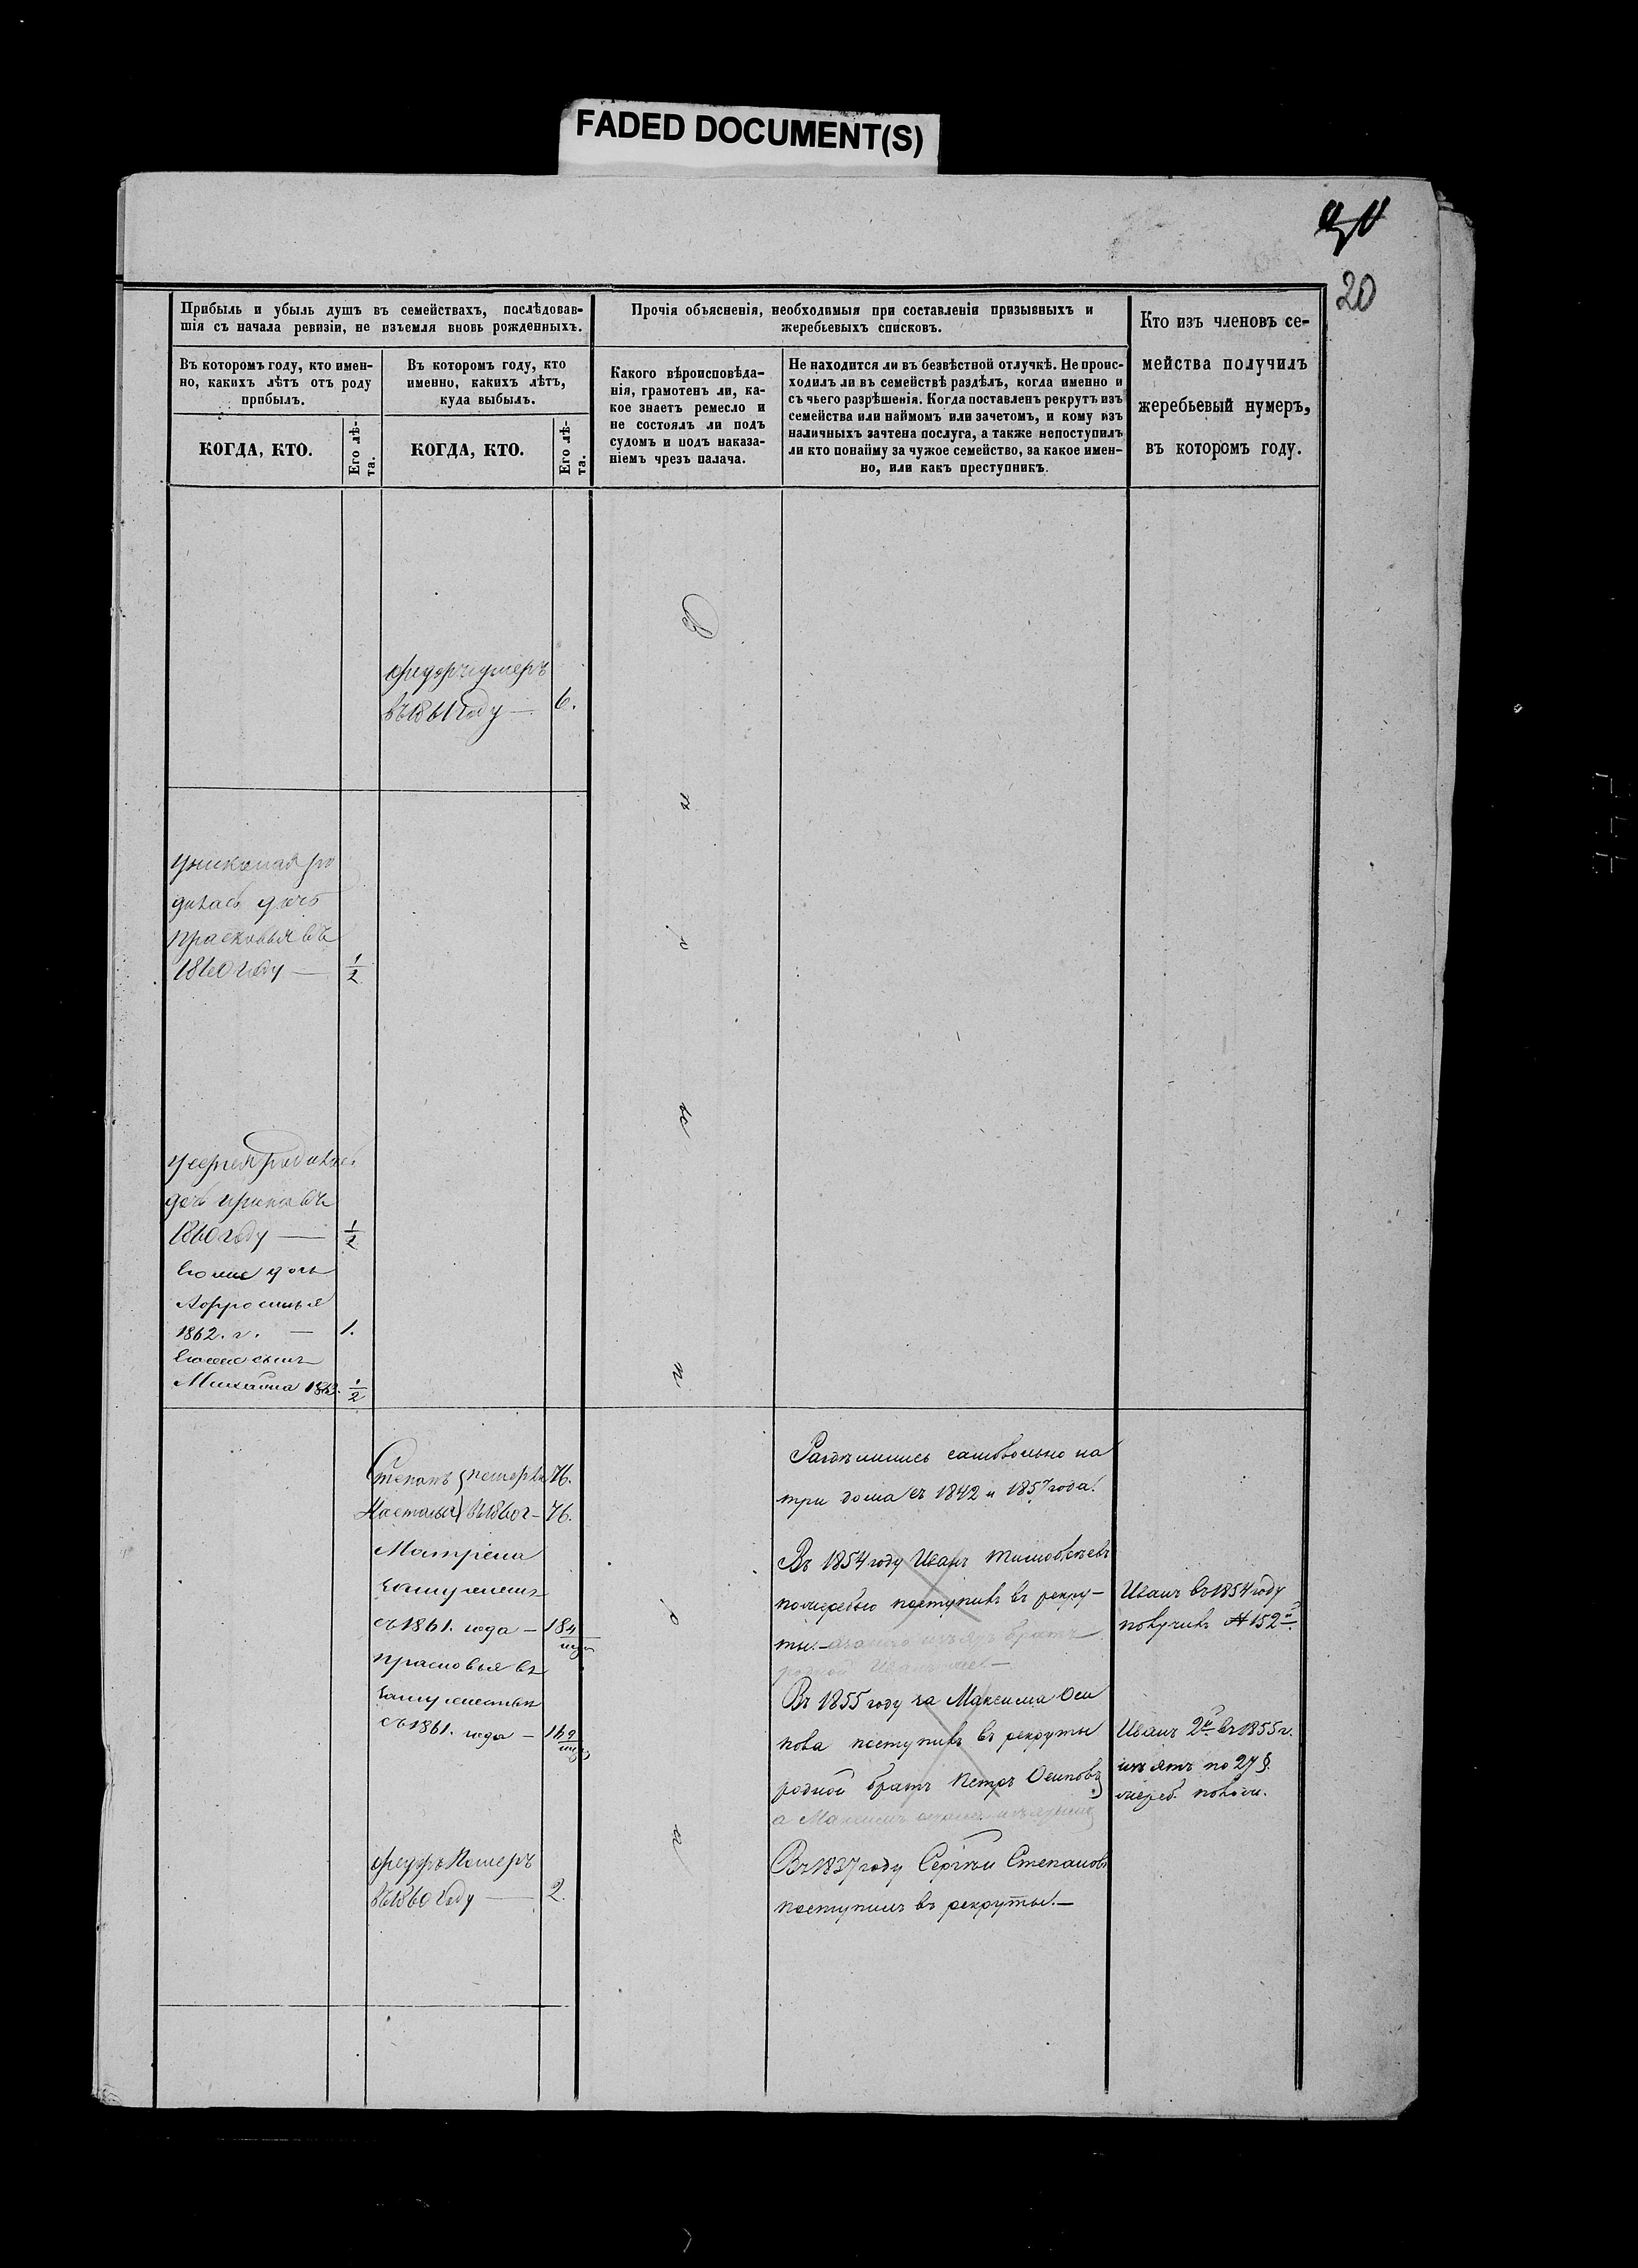 FADED DOCUMENT(S)
20
Прибыль и убыль душъ въ семействахъ, послѣдовав-
шія съ начала ревизіи, не изъемля вновь рожденныхъ.
Прочія объясненія, необходимыя при составленіи призывныхъ и
жеребьевыхъ списковъ.
Кто изъ членовъ се-
мейства получилъ
жеребьевый нумеръ,
въ которомъ году.
Въ которомъ году, кто имен-
но, какихъ лѣтъ отъ роду
прибылъ.
Въ которомъ году, кто
именно, какихъ лѣтъ,
куда выбылъ.
Какого вѣроисповѣда-
нія, грамотенъ ли, ка-
кое знаетъ ремесло и
не состоялъ ли подъ
судомъ и подъ наказа-
ніемъ чрезъ палача.
Не находится ли въ безвѣстной отлучкѣ. Не проис-
ходилъ ли въ семействѣ раздѣлъ, когда именно и
съ чьего разрѣшенія. Когда поставленъ рекрутъ изъ
семейства или наймомъ или зачетомъ, и кому изъ
наличныхъ зачтена послуга, а также непоступилъ
ли кто понайму за чужое семейство, за какое имен-
но, или какъ преступникъ.
КОГДА, КТО.
Его лѣ-
та.
КОГДА, КТО.
Его лѣ-
та.
федоръ умеръ
въ 1861 году — 6.
у николая ро
дилась дочь
прасковья въ
1860 году — 1/2
у сергея родилась
дочь ирина въ
1860 году — 1/2
дочь
1862. г. — 1.
сынъ
Михаила 1863. 1/2
Степанъ померъ 76.
Настасья въ 1860 г — 76.
Матрена
замужемъ
съ 1861. года — 18
прасковья въ
замужествѣ
съ 1861. года — 16
федоръ Померъ
въ 1860 году — 2.
Раздѣлились самовольно на
три дома съ 1842 и 1857 года.
Въ 1854 году Иванъ Тимофѣевъ
поступилъ въ рекру-
ты.— братъ
родной Иванъ
Въ 1855 году за Максима Оси
пова поступилъ въ рекруты
родной братъ Петръ Осиповъ
а Максимъ
Въ 1837 году Сергѣй Степановъ
поступилъ въ рекруты.—
Иванъ въ 1854 году
получилъ № 152й.
Иванъ 2й въ 1855 г.
изъятъ по 27 §.